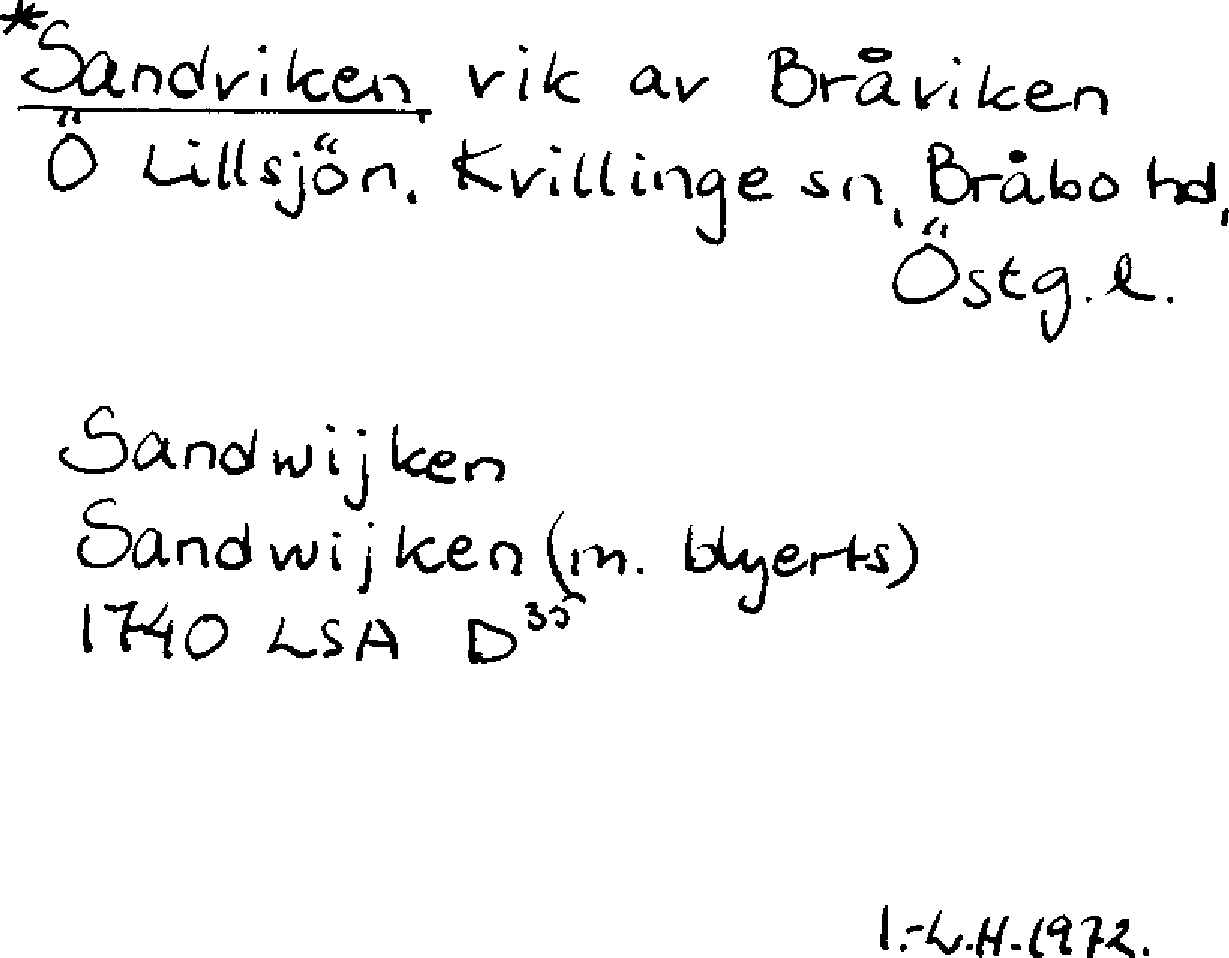 *Sandviken vik av Bråviken
Ö Lillsjön. Kvillinge sn, Bråbo hd,
Östg. l.
Sandwijken
Sandwijken (m. blyerts)
1740 LSA D³⁵
I.-L.H. 1972.